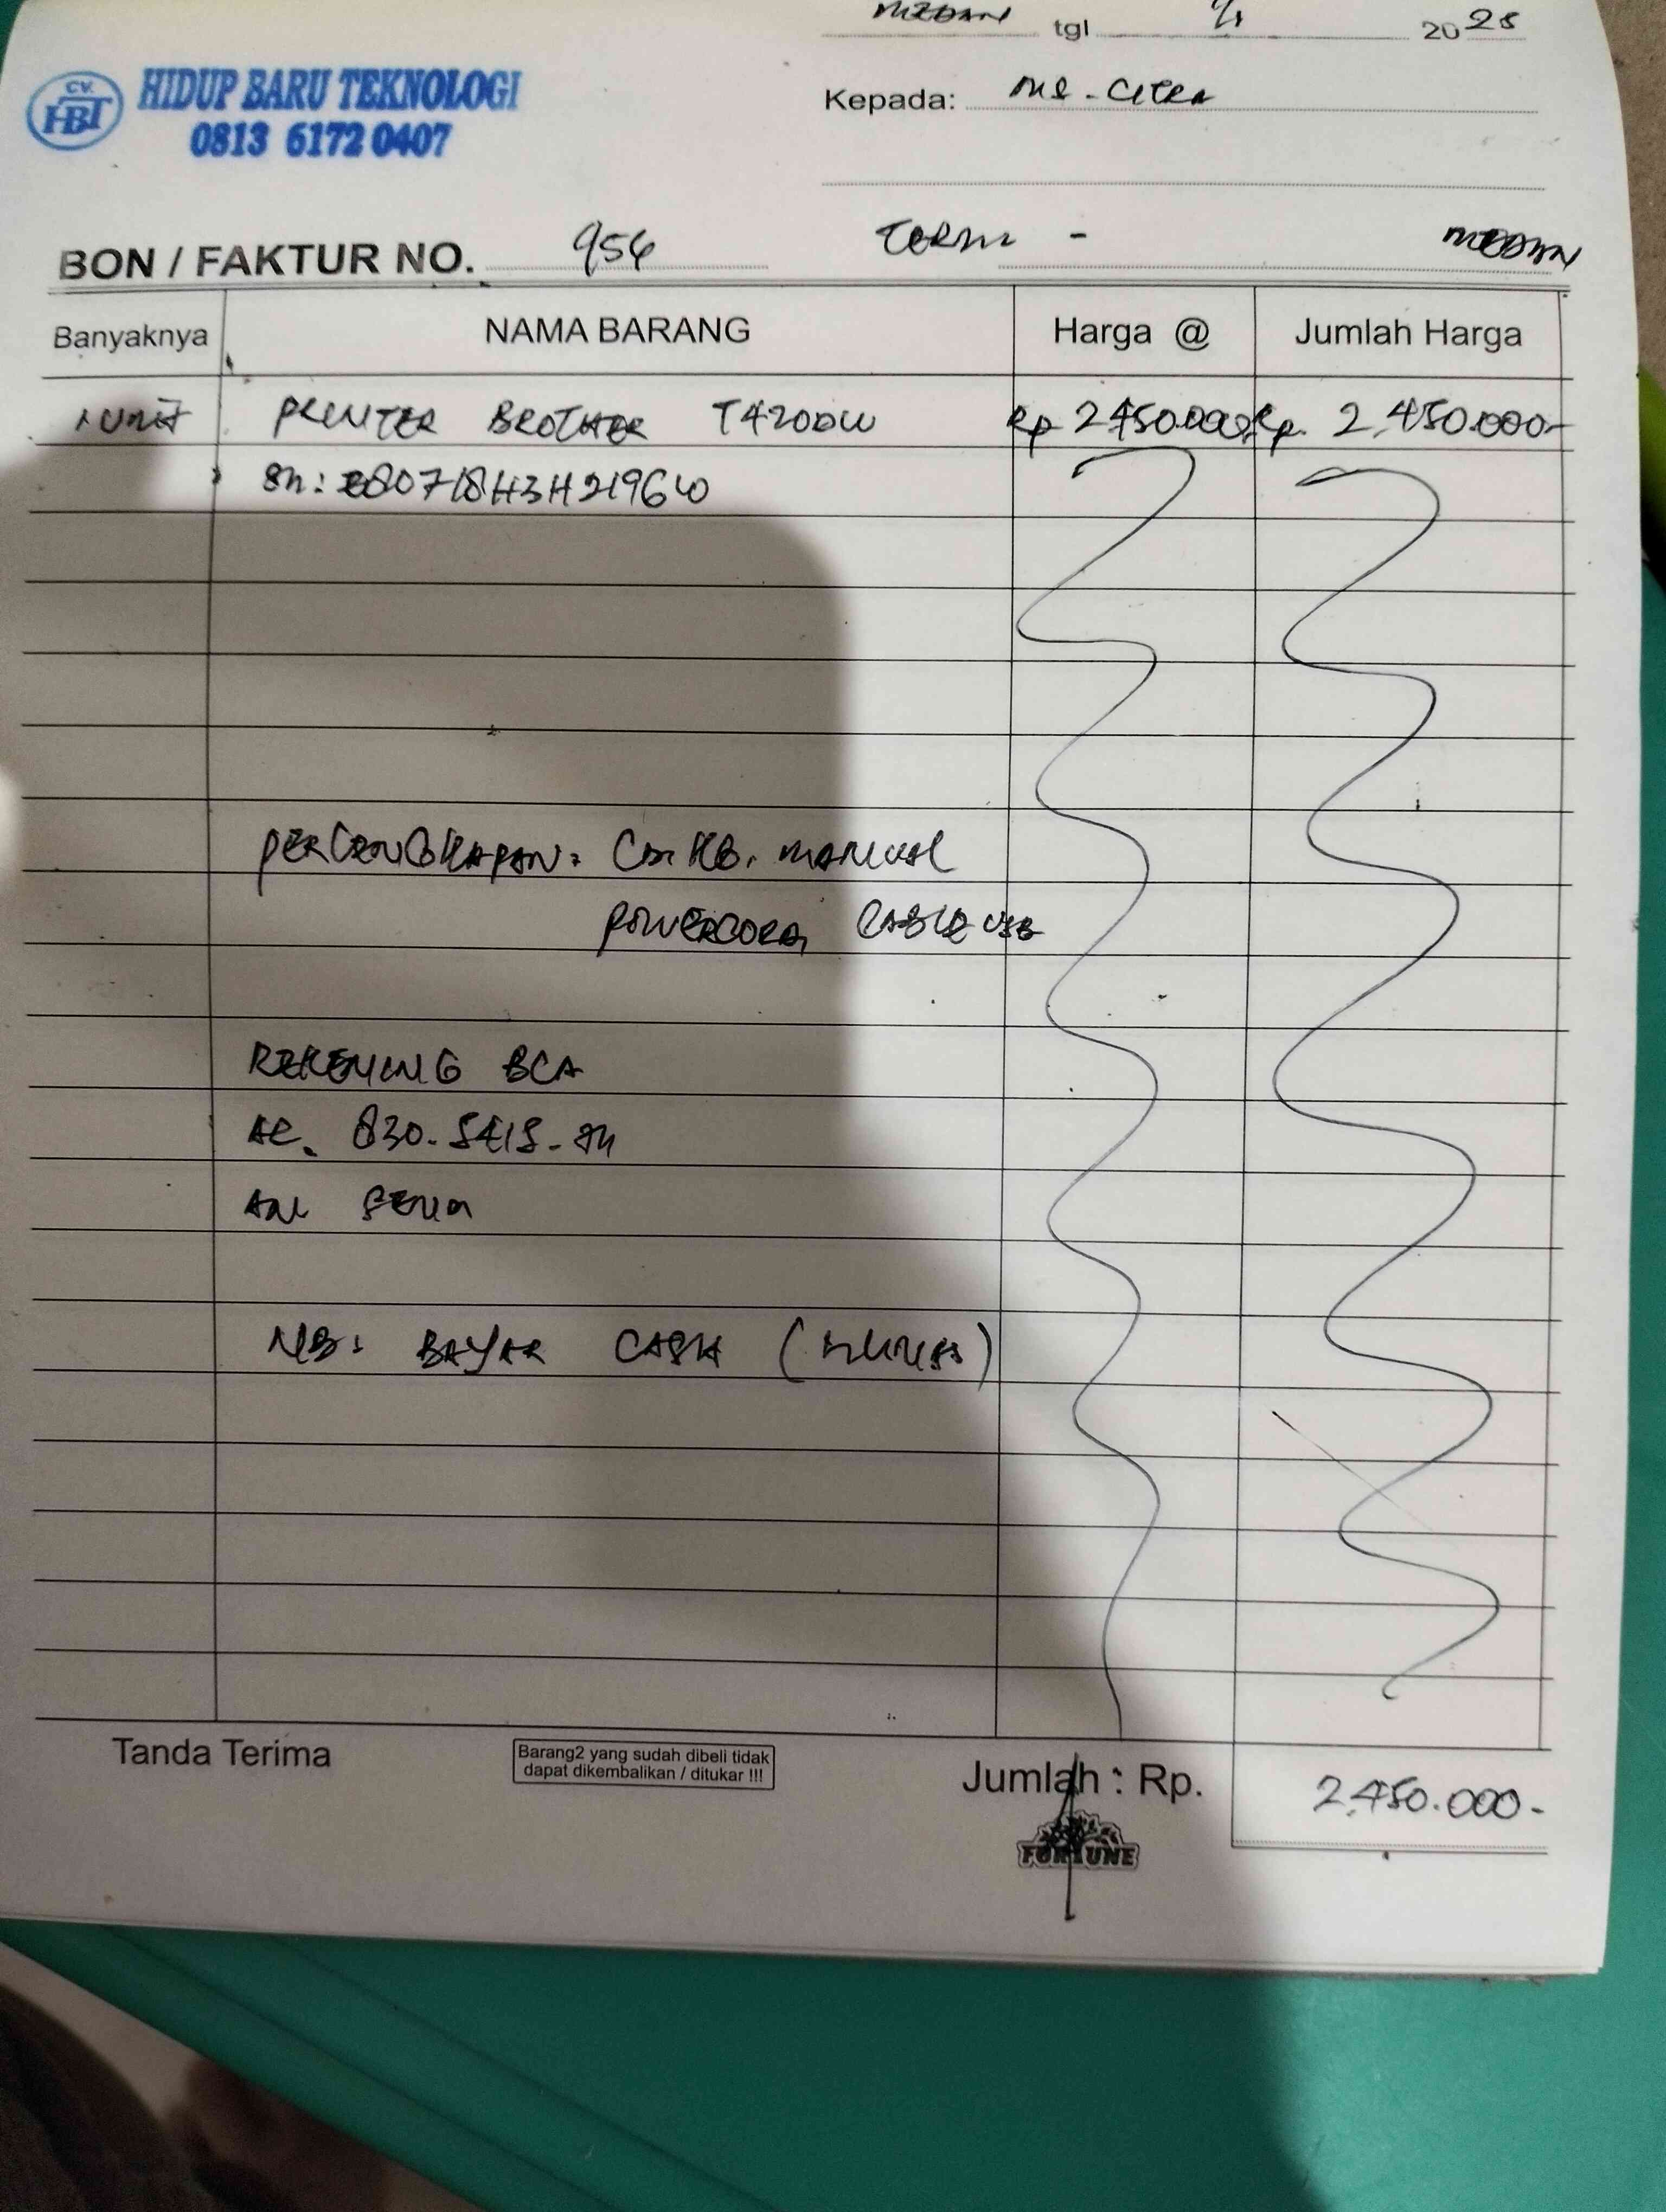 MEDAN tgl 9/1 2025
CV. HBT HIDUP BARU TEKNOLOGI
0813 6172 0407
Kepada: MS - CITRA
BON / FAKTUR NO. 956 TERM - MEDAN
Banyaknya NAMA BARANG Harga @ Jumlah Harga
1 UNIT PRINTER BROTHER T420DW Rp 2.450.000 Rp. 2.450.000-
SN: E80718H3H219610
PERLENGKAPAN: MANUAL
POWERCORD, CABLE USB
REKENING BCA
AC. 830-5415-
AN
NB: BAYAR CASH (LUNAS)
Tanda Terima
Barang2 yang sudah dibeli tidak
dapat dikembalikan / ditukar !!!
Jumlah : Rp. 2.450.000-
FORTUNE